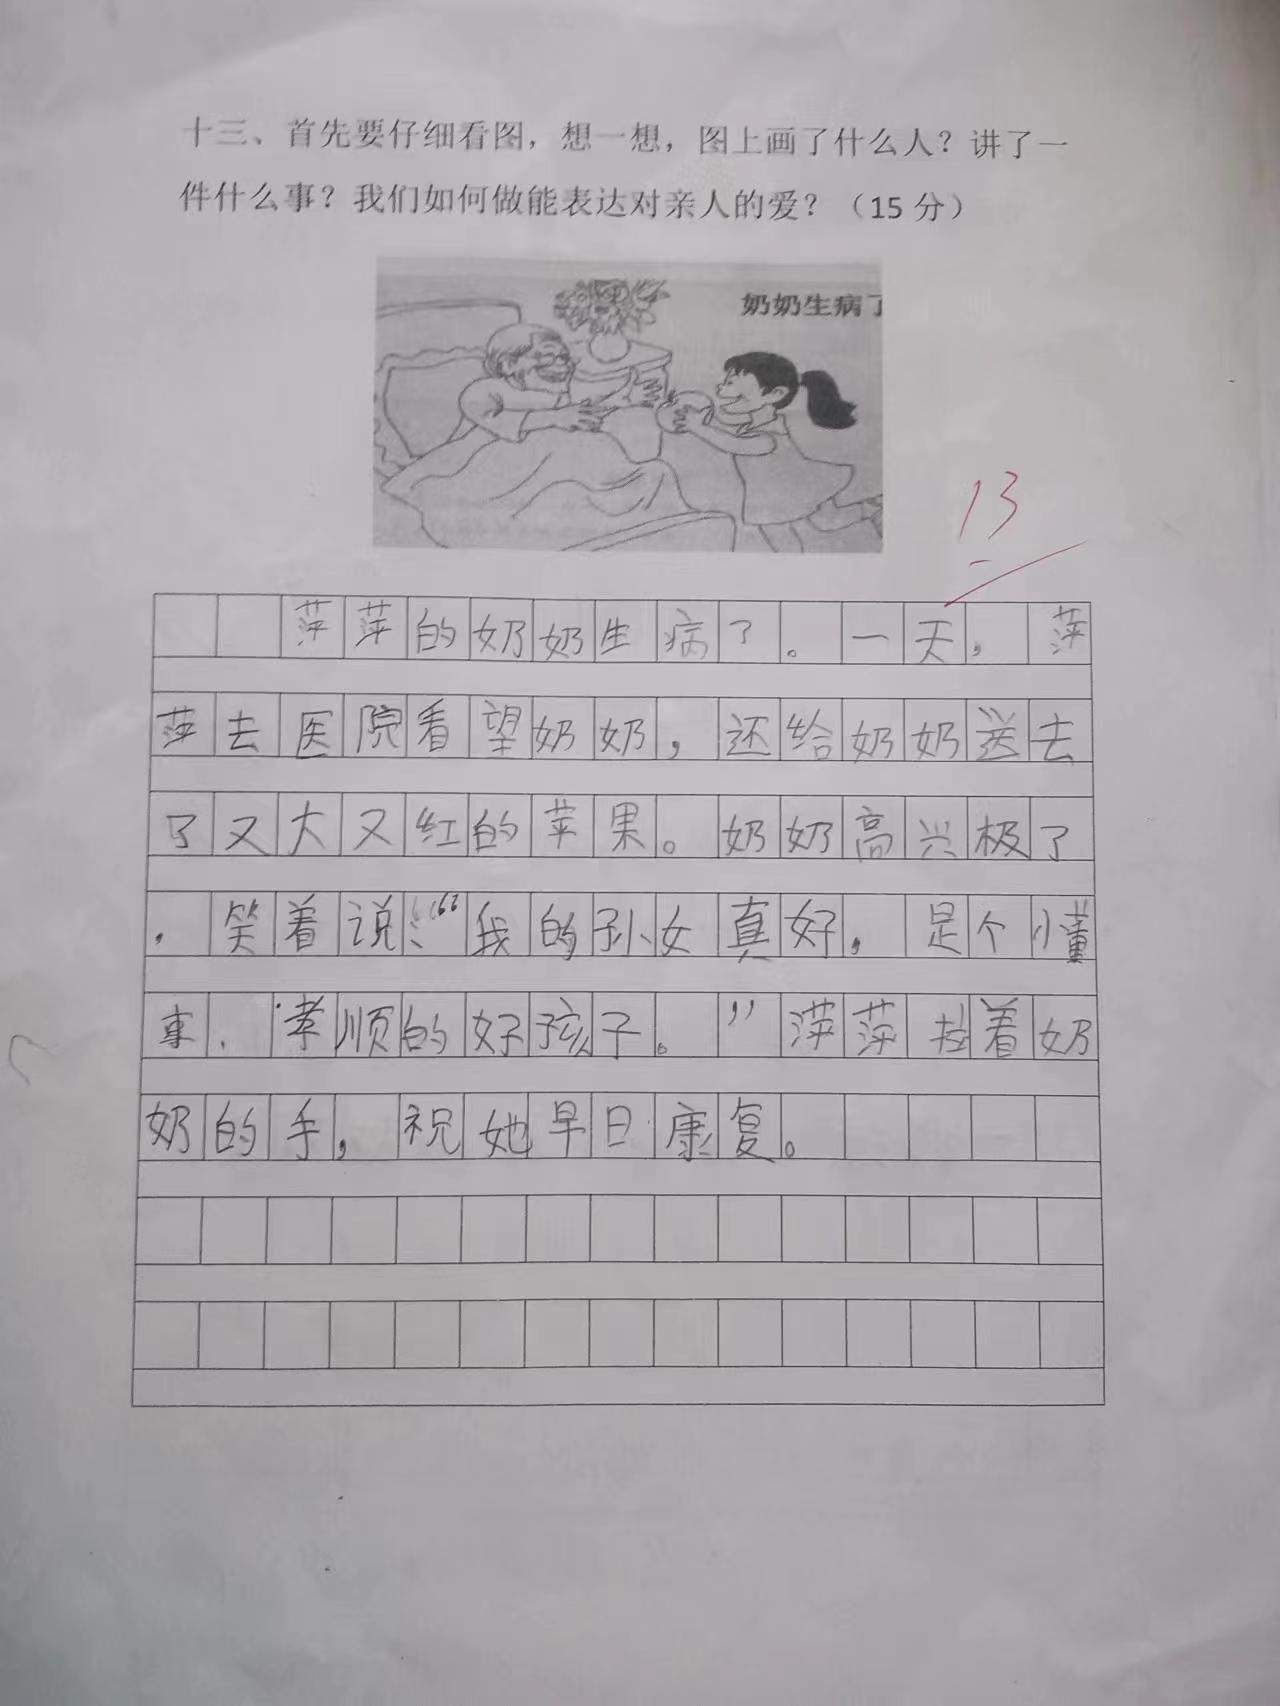 十三、首先要仔细看图，想一想，图上画了什么人？讲了一
件什么事？我们如何做能表达对亲人的爱？（15 分）
奶奶生病了
13
萍萍的奶奶生病了。一天，萍
萍去医院看望奶奶，还给奶奶送去
了又大又红的苹果。奶奶高兴极了
，笑着说：“我的孙女真好，是个懂
事、孝顺的好孩子。”萍萍拉着奶
奶的手，祝她早日康复。